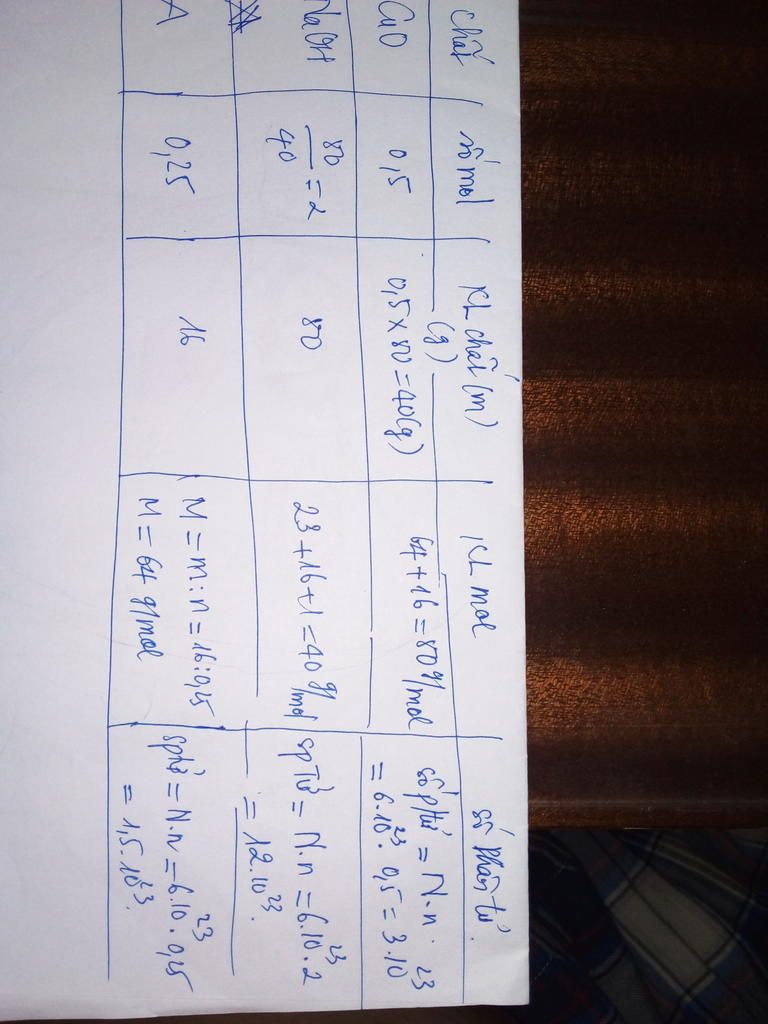 Chất
số mol
KL chất (m)
(g)
KL mol
số phân tử.
CuO
0,5
0,5 x 80 = 40(g)
64 + 16 = 80 g/mol
số p/tử = N.n.
= 6.10²³. 0,5 = 3.10²³
NaOH
80/40 = 2
80
23 + 16 + 1 = 40 g/mol
sp tử = N.n = 6.10²³.2
= 12.10²³.
A
0,25
16
M = m : n = 16:0,25
M = 64 g/mol
sptử = N.n = 6.10²³. 0,25
= 1,5.10²³.